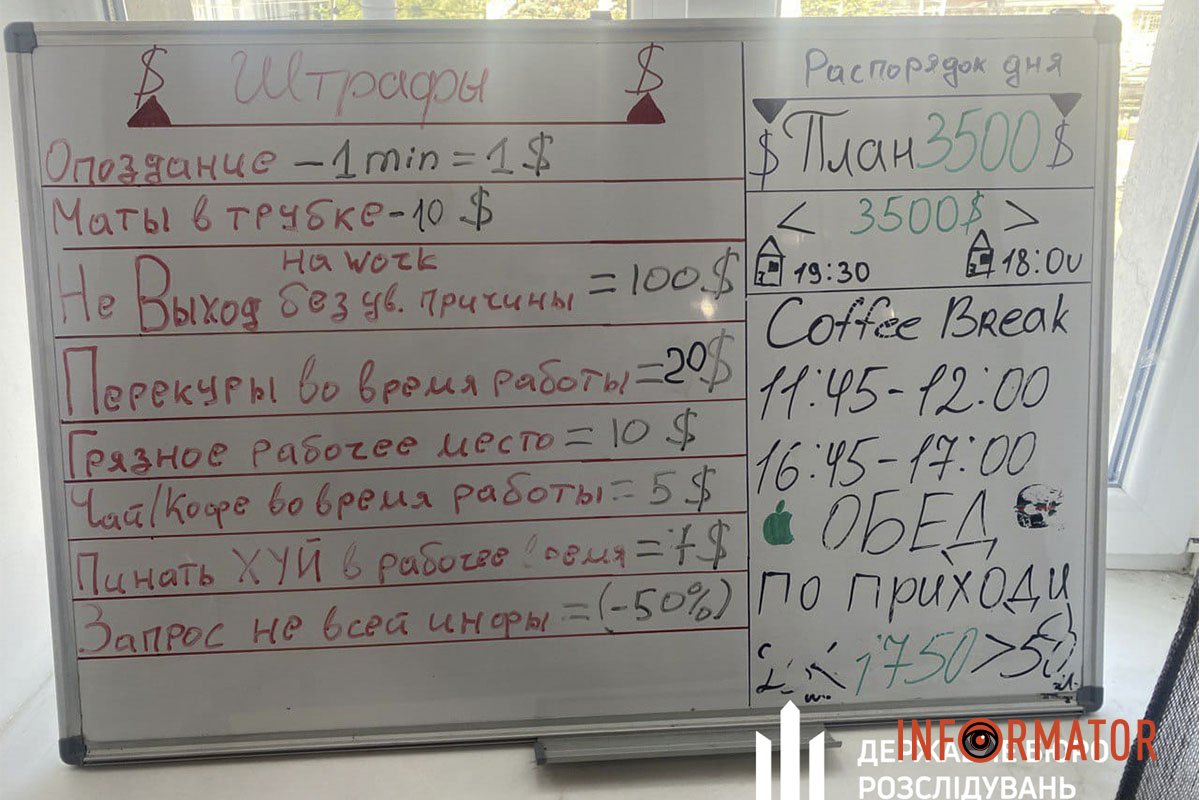 $ Штрафы $
Опоздание - 1 min = 1 $
Маты в трубке - 10 $
на work
Не Выход без ув. причины = 100 $
Перекуры во время работы = 20 $
Грязное рабочее место = 10 $
Чай/Кофе во время работы = 5 $
Пинать ХУЙ в рабочее время = 7 $
Запрос не всей инфы = (-50%)
Распорядок дня
$ План 3500 $
< 3500$ >
19:30 18:00
Coffee Break
11:45-12:00
16:45-17:00
ОБЕД
по приходи
< 1750 >
ДЕРЖАВНЕ БЮРО
РОЗСЛІДУВАНЬ
INFORMATOR